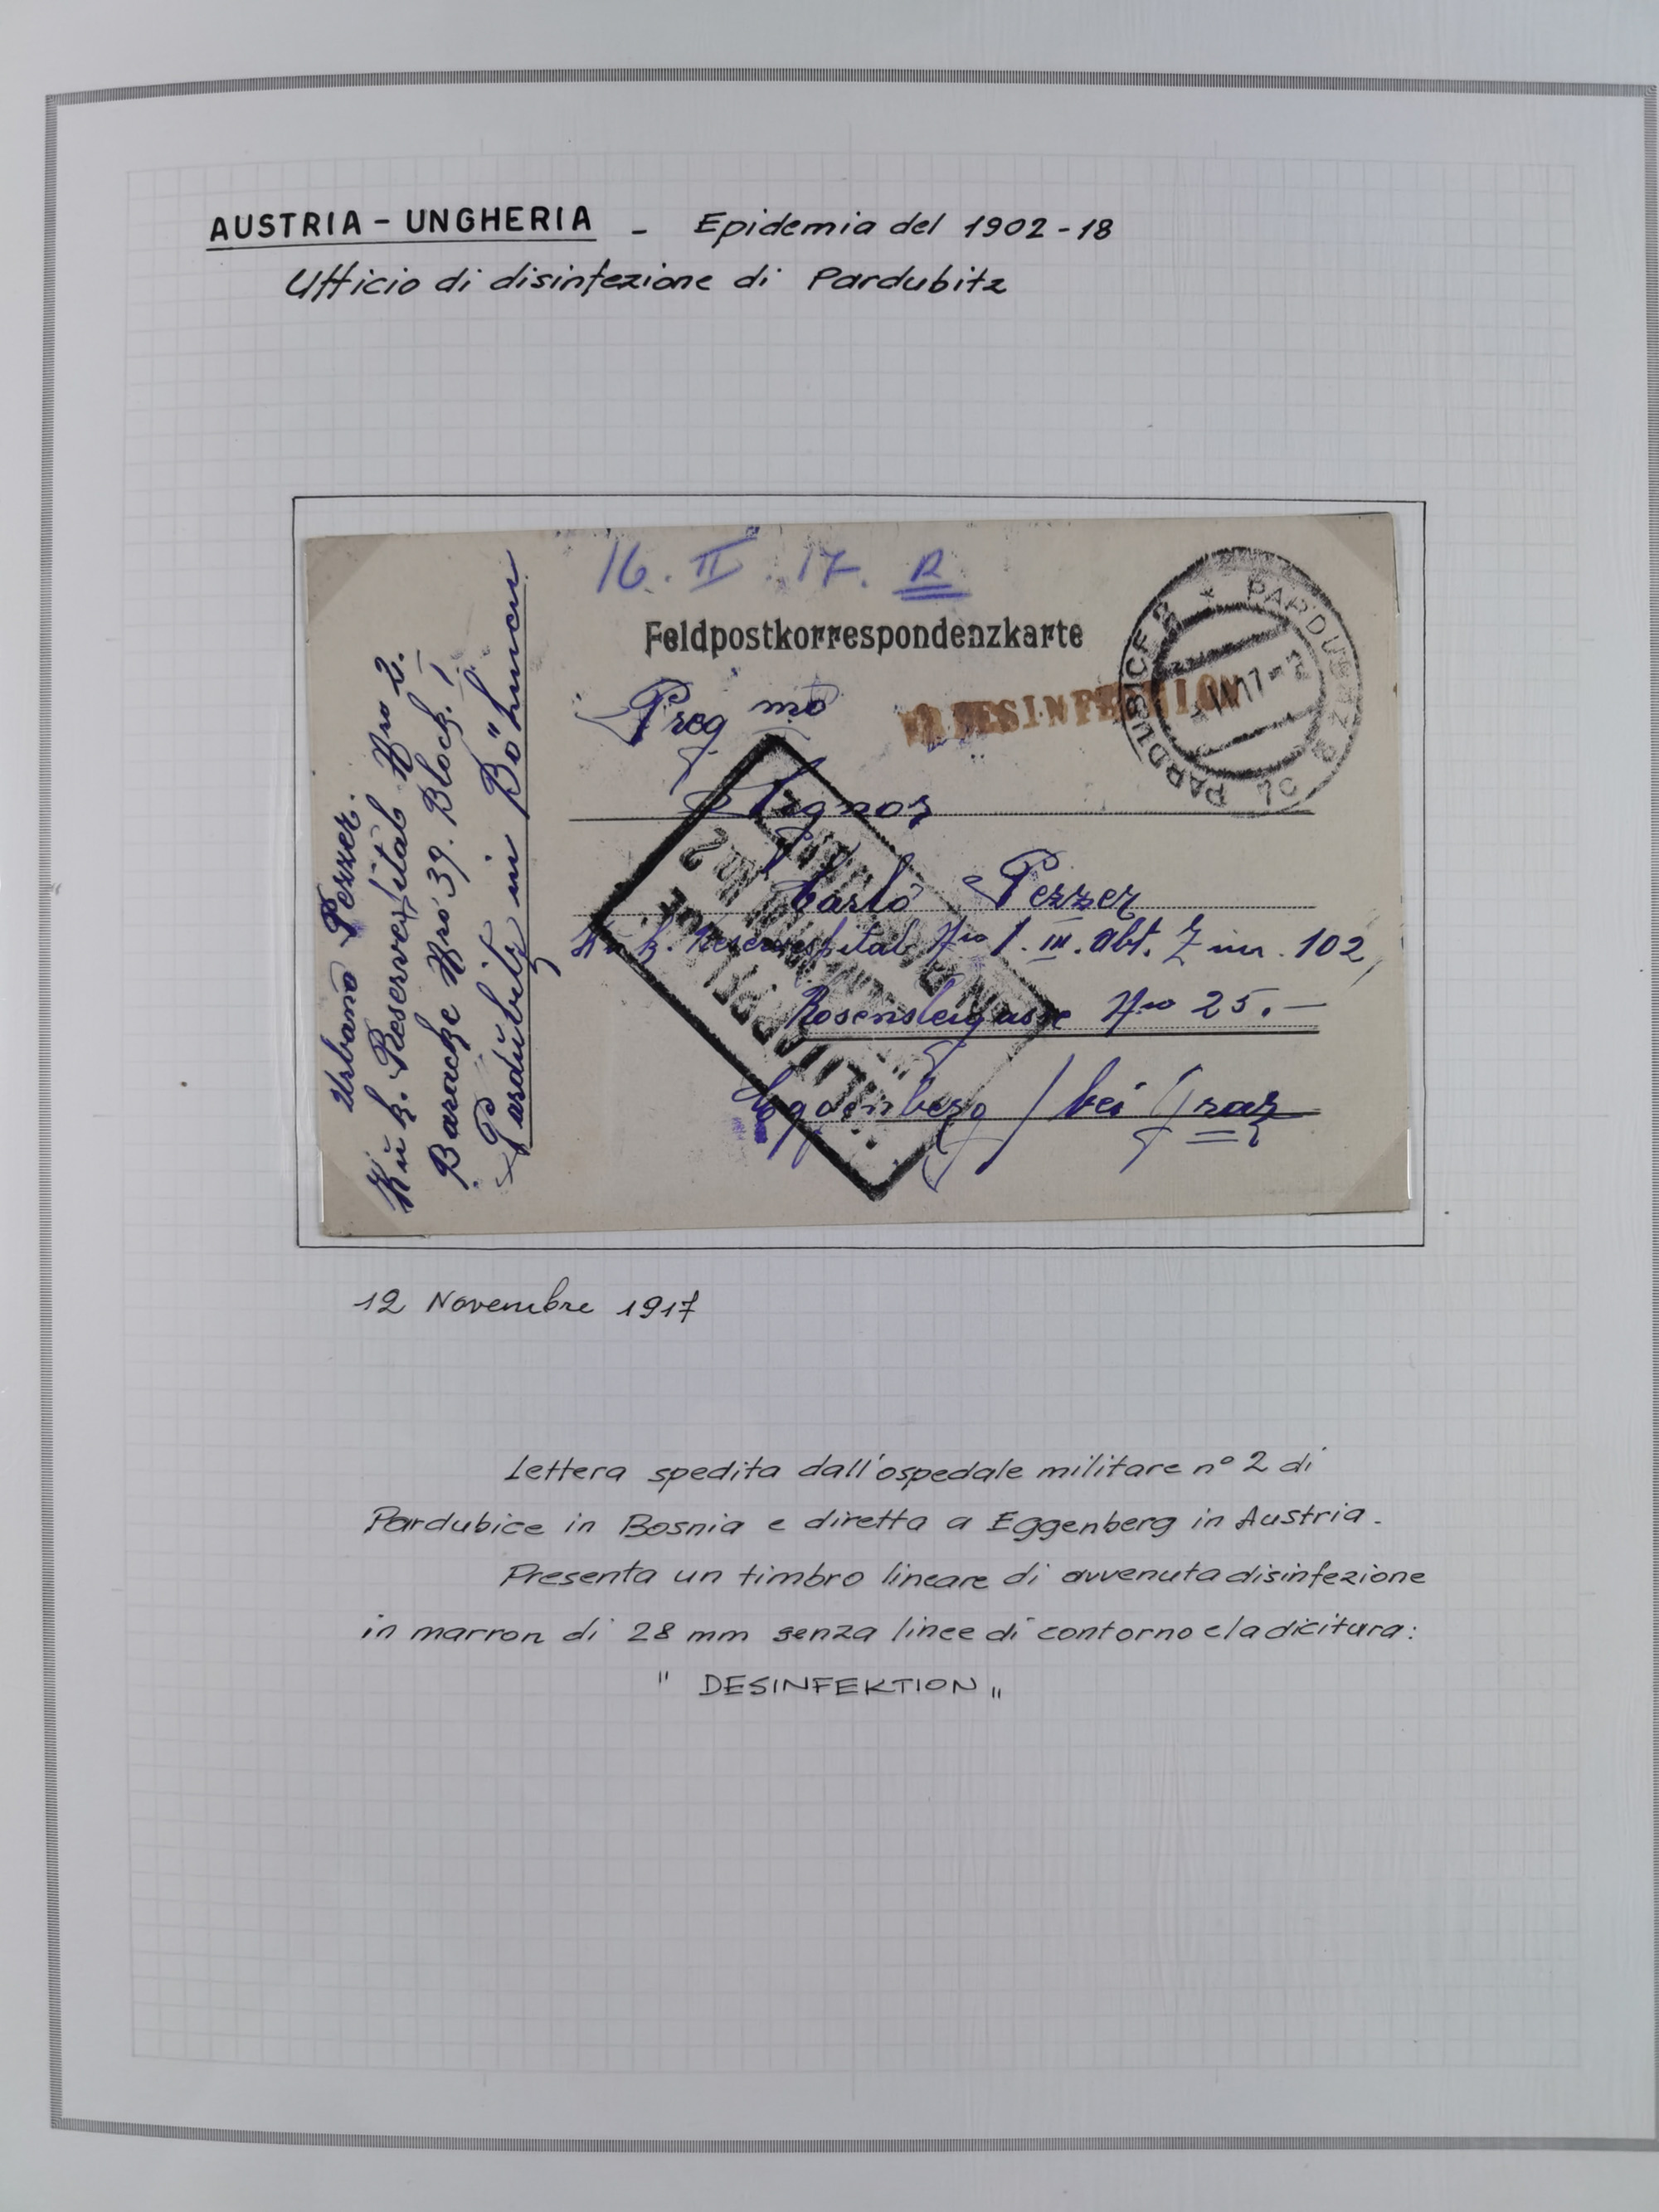 AUSTRIA - UNGHERIA - Epidemia del 1902-18
Ufficio di disinfezione di Pardubitz
16. II. 17. R
Feldpostkorrespondenzkarte
PARDUBICE 2 * PARDUBITZ 2
17-3
DESINFEKTION
Preg mo
Signor
Carlo Pezzer
K. u. k. Reservespital Nro 1. III. Abt. Zim. 102,
Nro 25.-
Eggenberg / bei Graz
No 2
Urbano Pezzer.
K. u. k. Reservespital Nro 2.
Baracke Nro 39. Block. I.
Pardubitz in Böhmen
12 Novembre 1917
Lettera spedita dall'ospedale militare n° 2 di
Pardubice in Bosnia e diretta a Eggenberg in Austria.
Presenta un timbro lineare di avvenuta disinfezione
in marron di 28 mm senza linee di contorno e la dicitura:
" DESINFEKTION "